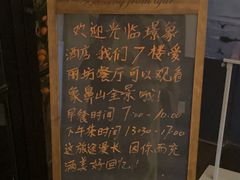 欢迎光临璟象
酒店,我们7楼爱
用坊餐厅可以观看
象鼻山全景哦!
早餐时间 7:00-10:00
下午餐时间 13:30-17:00
这旅途漫长 因你而充
满美好回忆!